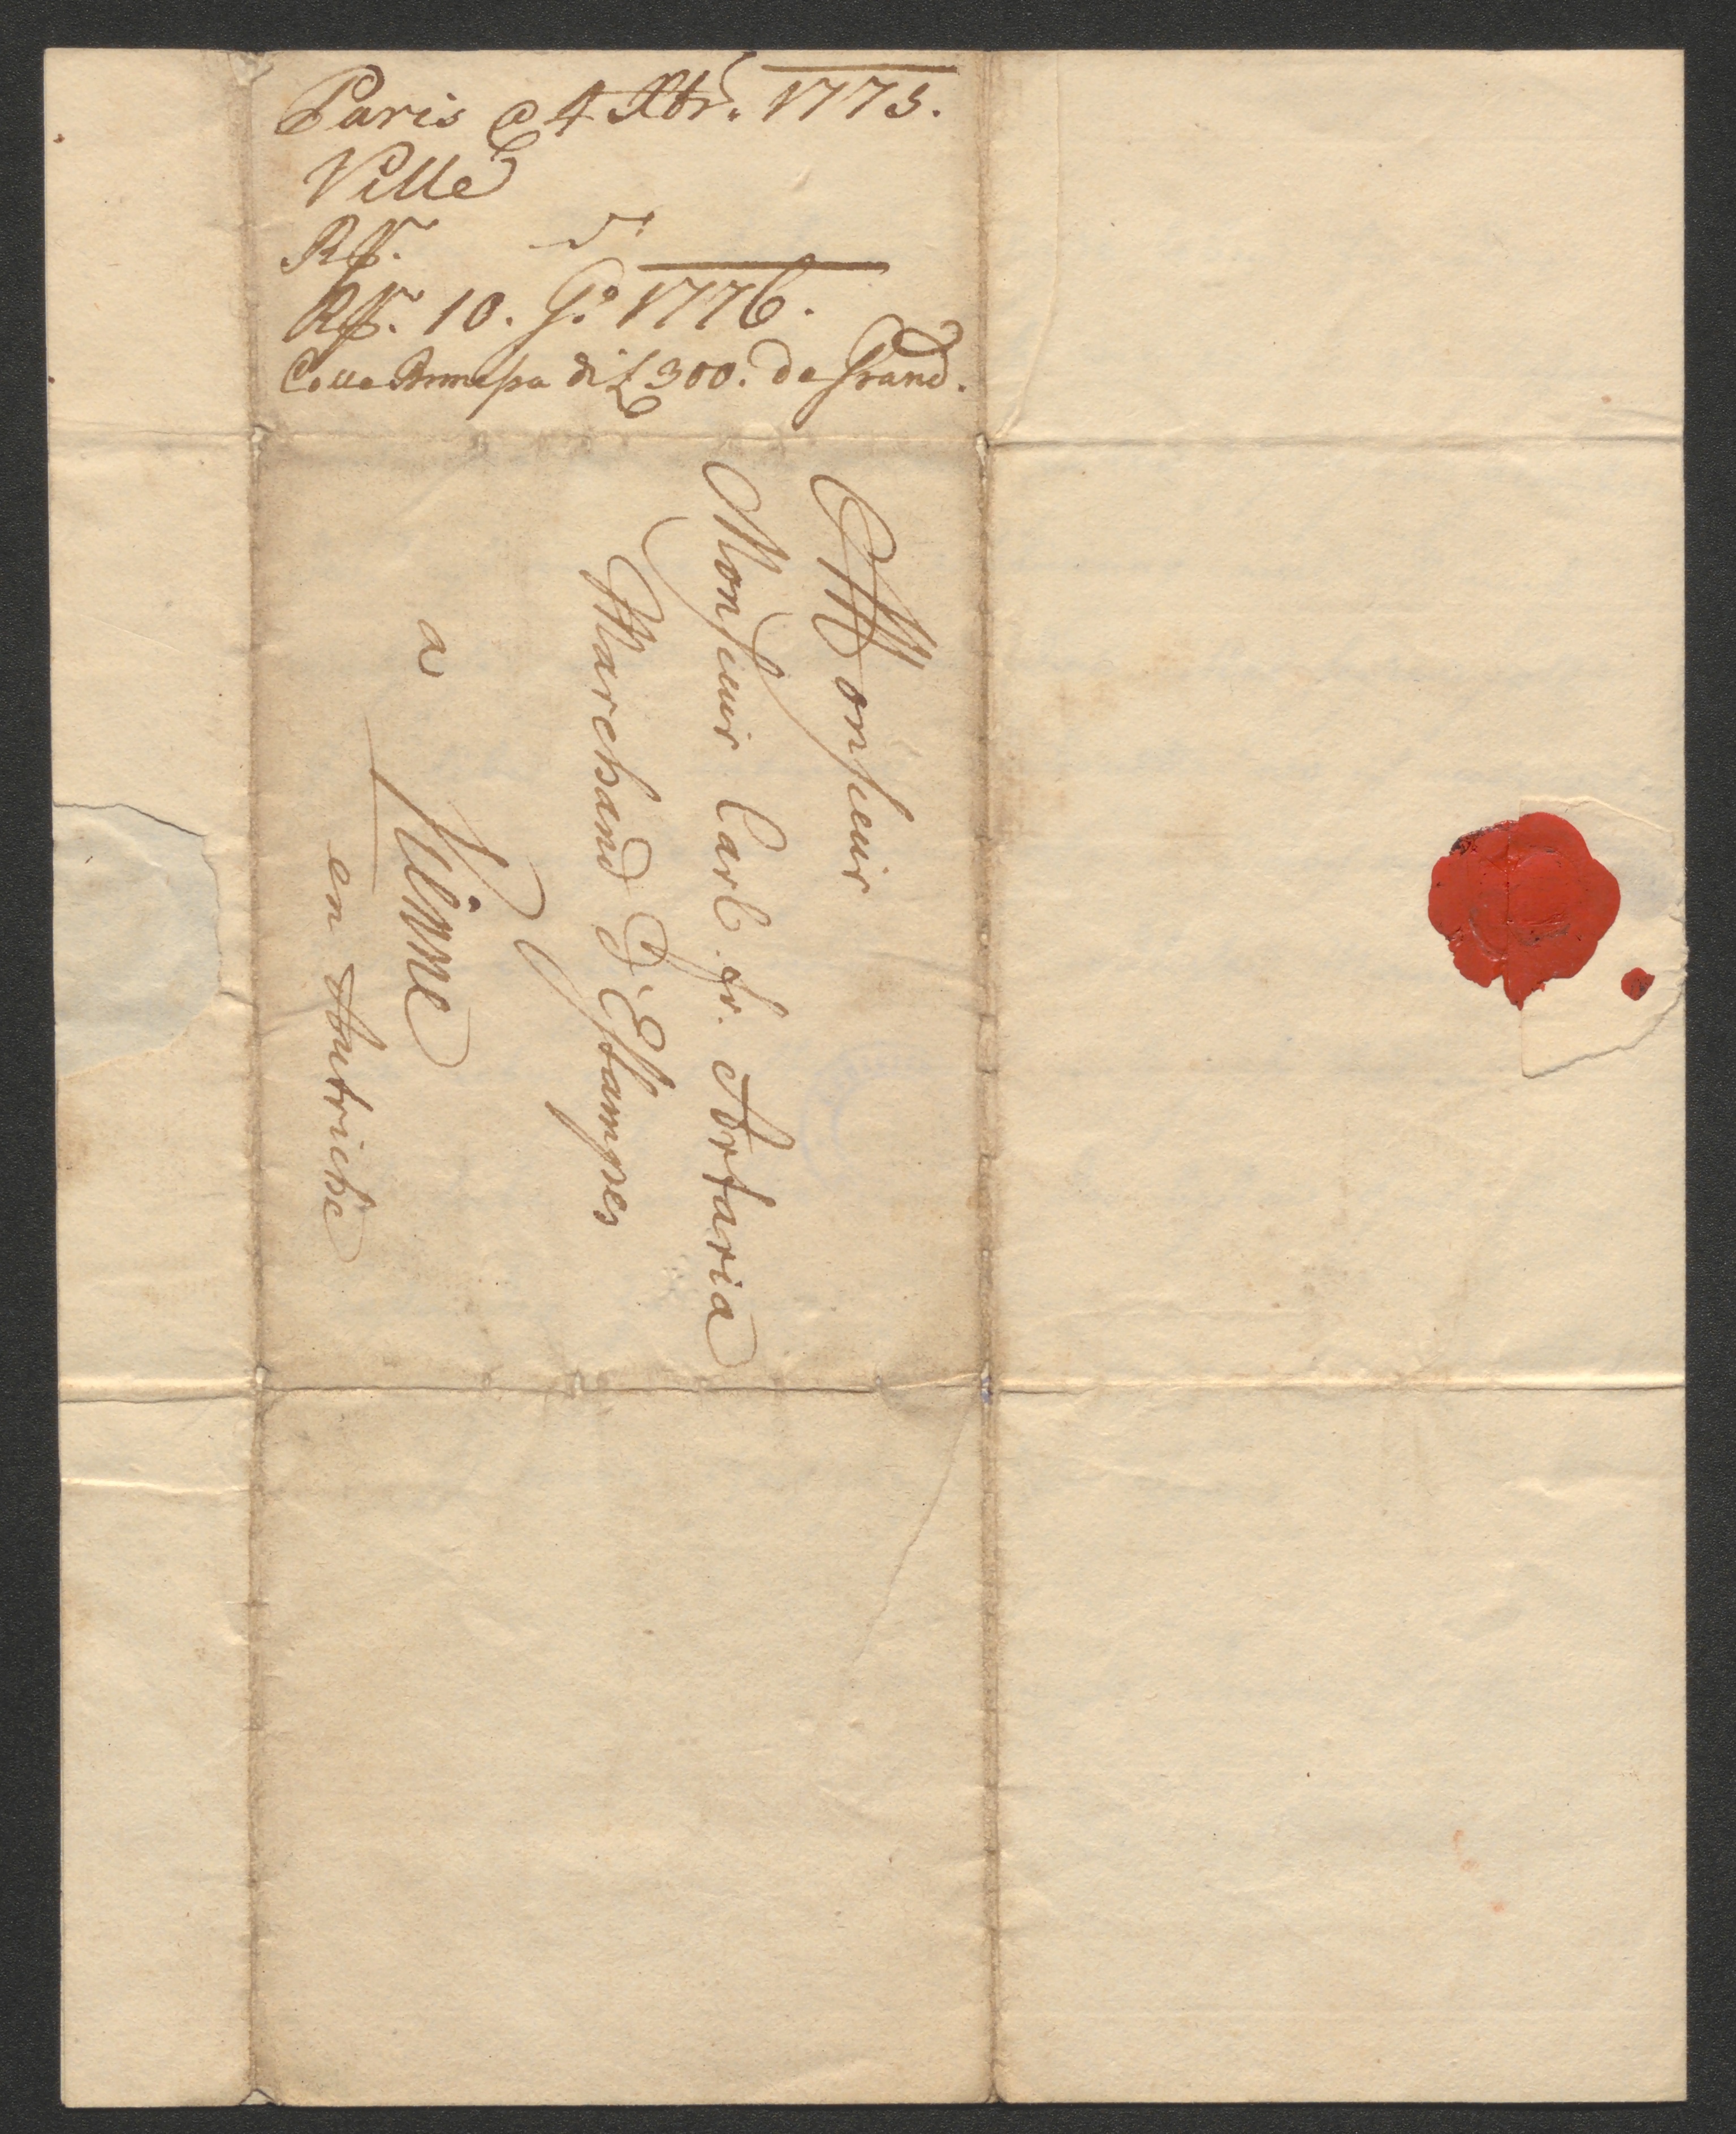 Paris @ 4 Xbr. 1775.
Ville
Rff.
Rff. 10. G.º 1776.
Colla di £ 300. de Grand.
Monsieur
Monsieur Carl fr. Artaria
Marchand D'Estampes
a Vienne
en Autriche